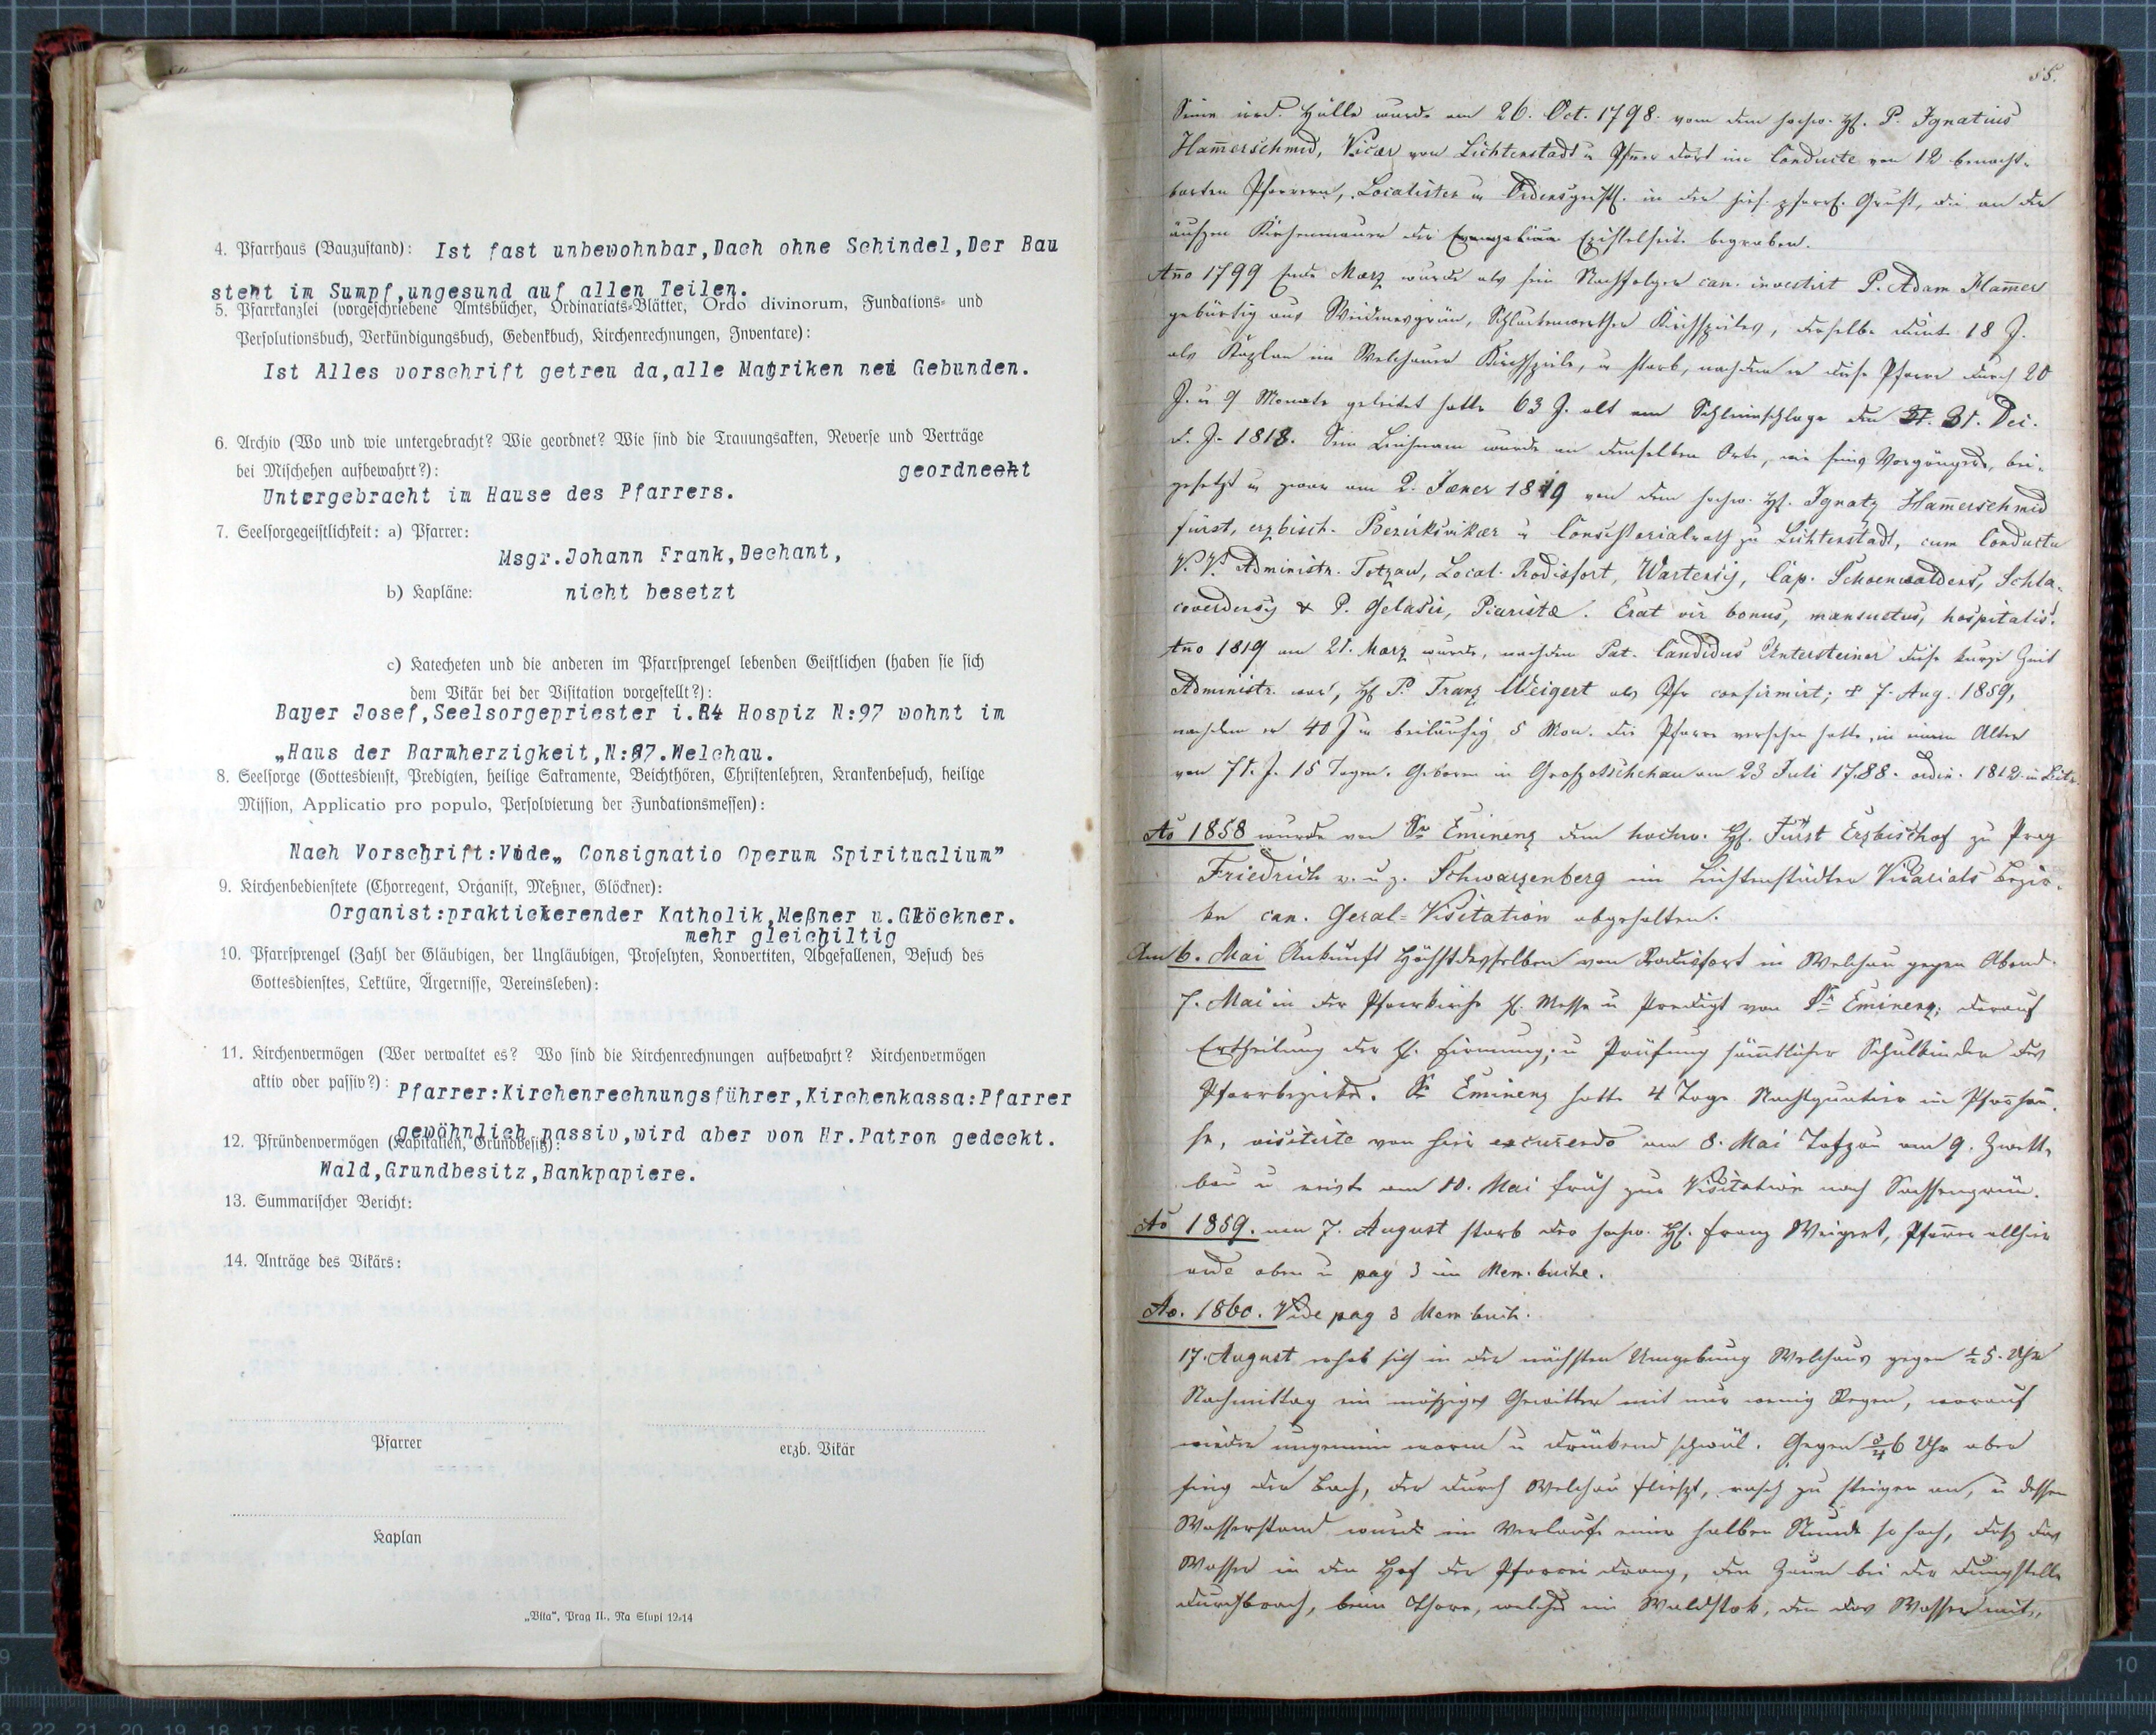 4. Pfarrhaus (Bauzustand): Ist fast unbewohnbar,Dach ohne Schindel,Der Bau
steht im Sumpf,ungesund auf allen Teilen.
5. Pfarrkanzlei (vorgeschriebene Amtsbücher, Ordinariats-Blätter, Ordo divinorum, Fundations- und
Persolutionsbuch, Verkündigungsbuch, Gedenkbuch, Kirchenrechnungen, Inventare):
Ist Alles vorschrift getreu da,alle Matriken neu Gebunden.
6. Archiv (Wo und wie untergebracht? Wie geordnet? Wie sind die Trauungsakten, Reverse und Verträge
bei Mischehen aufbewahrt?): geordnet
Untergebracht im Hause des Pfarrers.
7. Seelsorgegeistlichkeit: a) Pfarrer:
Msgr.Johann Frank,Dechant,
b) Kapläne: nicht besetzt
c) Katecheten und die anderen im Pfarrsprengel lebenden Geistlichen (haben sie sich
dem Vikär bei der Visitation vorgestellt?):
Bayer Josef,Seelsorgepriester i.R. Hospiz N:97 wohnt im
„Haus der Barmherzigkeit,N:97.Welchau.
8. Seelsorge (Gottesdienst, Predigten, heilige Sakramente, Beichthören, Christenlehren, Krankenbesuch, heilige
Mission, Applicatio pro populo, Persolvierung der Fundationsmessen):
Nach Vorschrift:Vide„ Consignatio Operum Spiritualium”
9. Kirchenbedienstete (Chorregent, Organist, Meßner, Glöckner):
Organist:praktickerender Katholik,Meßner u.Glöckner.
mehr gleichiltig
10. Pfarrsprengel (Zahl der Gläubigen, der Ungläubigen, Proselyten, Konvertiten, Abgefallenen, Besuch des
Gottesdienstes, Lektüre, Ärgernisse, Vereinsleben):
11. Kirchenvermögen (Wer verwaltet es? Wo sind die Kirchenrechnungen aufbewahrt? Kirchenvermögen
aktiv oder passiv?): Pfarrer:Kirchenrechnungsführer,Kirchenkassa:Pfarrer
gewöhnlich passiv,wird aber von Hr.Patron gedeckt.
12. Pfründenvermögen (Kapitalien, Grundbesitz):
Wald,Grundbesitz,Bankpapiere.
13. Summarischer Bericht:
14. Anträge des Vikärs:
Pfarrer
erzb. Vikär
Kaplan
„Vita“, Prag II., Na Slupi 12-14
55.
Seine ird. Hülle wurde am 26. Oct. 1798. von dem hochw. H. P. Ignatius
Ham̄erschmid, Vicær von Lichtenstadt u Pfarrer dort im Conducte von 12 benach-
barten Pfarrern, Localisten u Ordensgeistl. in der hies. pfarrl. Gruft, die an der
äußern Kirchenmauer der Epistelseite begraben.
Año 1799 Ende Mærz wurde als sein Nachfolger can. investirt P. Adam Ham̄er
gebürtig aus Weidmesgrün, Schlackenwerther Kirchspieles, derselbe diente 18 J.
als Kaplan im Welchauer Kirchspiele, u starb, nachdem er diese Pfarre durch 20
J. u 9 Monate geleitet hatte 63 J. alt am Schleimschlage den 31. Dec.
d. J. 1818. Sein Leichnam wurde an demselben Orte, wie seines Vorgängers, bei-
gesetzt u zwar am 2. Jæner 1819 von dem hochw. H. Ignatz Ham̄erschmid
fürst, erzbisch. Bezirksvikær u Consistorialrath zu Lichtenstadt, cum Conductu
V. V. Administr. Totzau, Local. Rodisfort, Wartensis, Cap. Schoenwaldens, Schla-
coverdensis & P. Gelasii, Piaristæ. Erat vir bonus, mansuetus, hospitalis.
Año 1819 am 21. Mærz wurde, nachdem Pat. Candidus Untersteiner diese kurze Zeit
Administr. war, H P. Franz Weigert als Pfr confirmirt; † 7. Aug. 1859,
nachdem er 40 J u beiläufig 5 Mon. die Pfarre versehen hatte, in einem Alter
von 71. J. 15 Tagen. Geboren in am 23 Juli 1788. ordin. 1812. in
Ao 1858 wurde von Sr Eminenz dem hochw. H. Fürst Erzbischof zu Prag
Friedrich v. u z. Schwarzenberg im Lichtenstädter Vicariats Bezir-
ke can. Geral-Visitation abgehalten.
Am 6. Mai Ankunft Höchstdesselben von Rodisfort in Welchau gegen Abend.
7. Mai in der Pfarrkirche h. Messe u Predigt von Sr Eminenz; darauf
Ertheilung der h. Firmung; u Prüfung sämtlicher Schulkinder des
Pfarrbezirks. Sr Eminenz hatte 4 Tage Nachtquartier im Pfarrhau-
se, visitirte von hier excurrendo am 8. Mai Totzau am 9. Zwett-
bau u reiste am 10. Mai früh zur Visitation nach Sachsengrün.
Ao 1859. am 7. August starb der hochw. H. Franz Weigert, Pfarrer allhier
vide oben u pag 3 im Mem.buche.
Ao. 1860. Vide pag 3 Mem buch.
17. August erhob sich in der nächsten Umgebung Welchaus gegen ½ 5. Uhr
Nachmittag ein mäßiges Gewitter mit nur wenig Regen, worauf
wieder ungemein warm u drückend schwül. Gegen ¾ 6 Uhr aber
fing der Bach, der durch Welchau fließt, rasch zu steigen an, u dessen
Wasserstand wurde im Verlaufe einer halben Stunde so hoch, daß das
Wasser in den Hof der Pfarrei drang, den Zaun bei der Dungstelle
durchbrach, beim Thore, welches im Waldstok, den das Wasser mit-